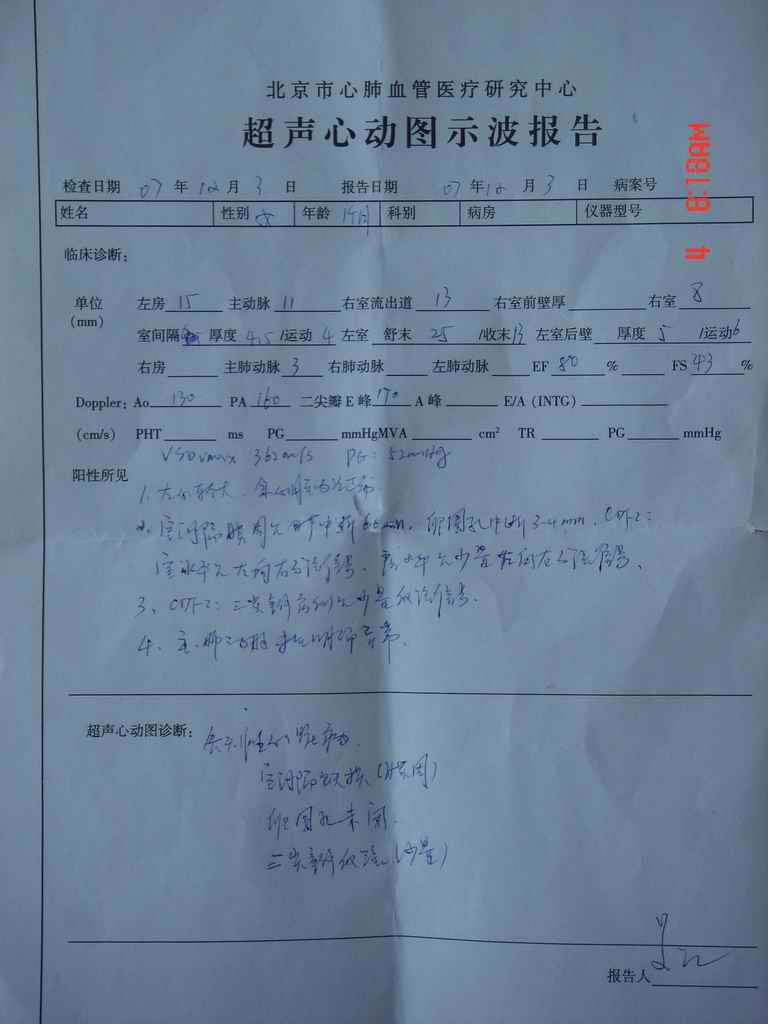 北京市心肺血管医疗研究中心
超声心动图示波报告
检查日期 07 年 12 月 3 日 报告日期 07 年 12 月 3 日 病案号
姓名 性别 女 年龄 1个月 科别 病房 仪器型号
临床诊断:
单位 左房 15 主动脉 11 右室流出道 13 右室前壁厚 右室 8
(mm) 室间隔 厚度 4.5 /运动 4 左室 舒末 25 /收末 13 左室后壁 厚度 5 /运动 6
右房 主肺动脉 右肺动脉 左肺动脉 EF 80 % FS 43 %
Doppler: Ao 130 PA 160 二尖瓣 E 峰 170 A 峰 E/A (INTG)
(cm/s) PHT ms PG mmHg MVA cm² TR PG mmHg
VSD Vmax 362cm/s PG: 52mmHg
阳性所见
1.
2. 室间隔膜周 中断 卵圆孔中断 3-4mm, CDFI:
室水平 左向右分流信号, 房水平 少量 左向右分流信号.
3. CDFI: 三尖瓣 少量反流信号.
4. 主、肺动脉 未 明显异常.
超声心动图诊断: 先天性心脏病
室间隔缺损 (膜周)
卵圆孔未闭
三尖瓣反流 (少量)
报告人
8:18AM 4